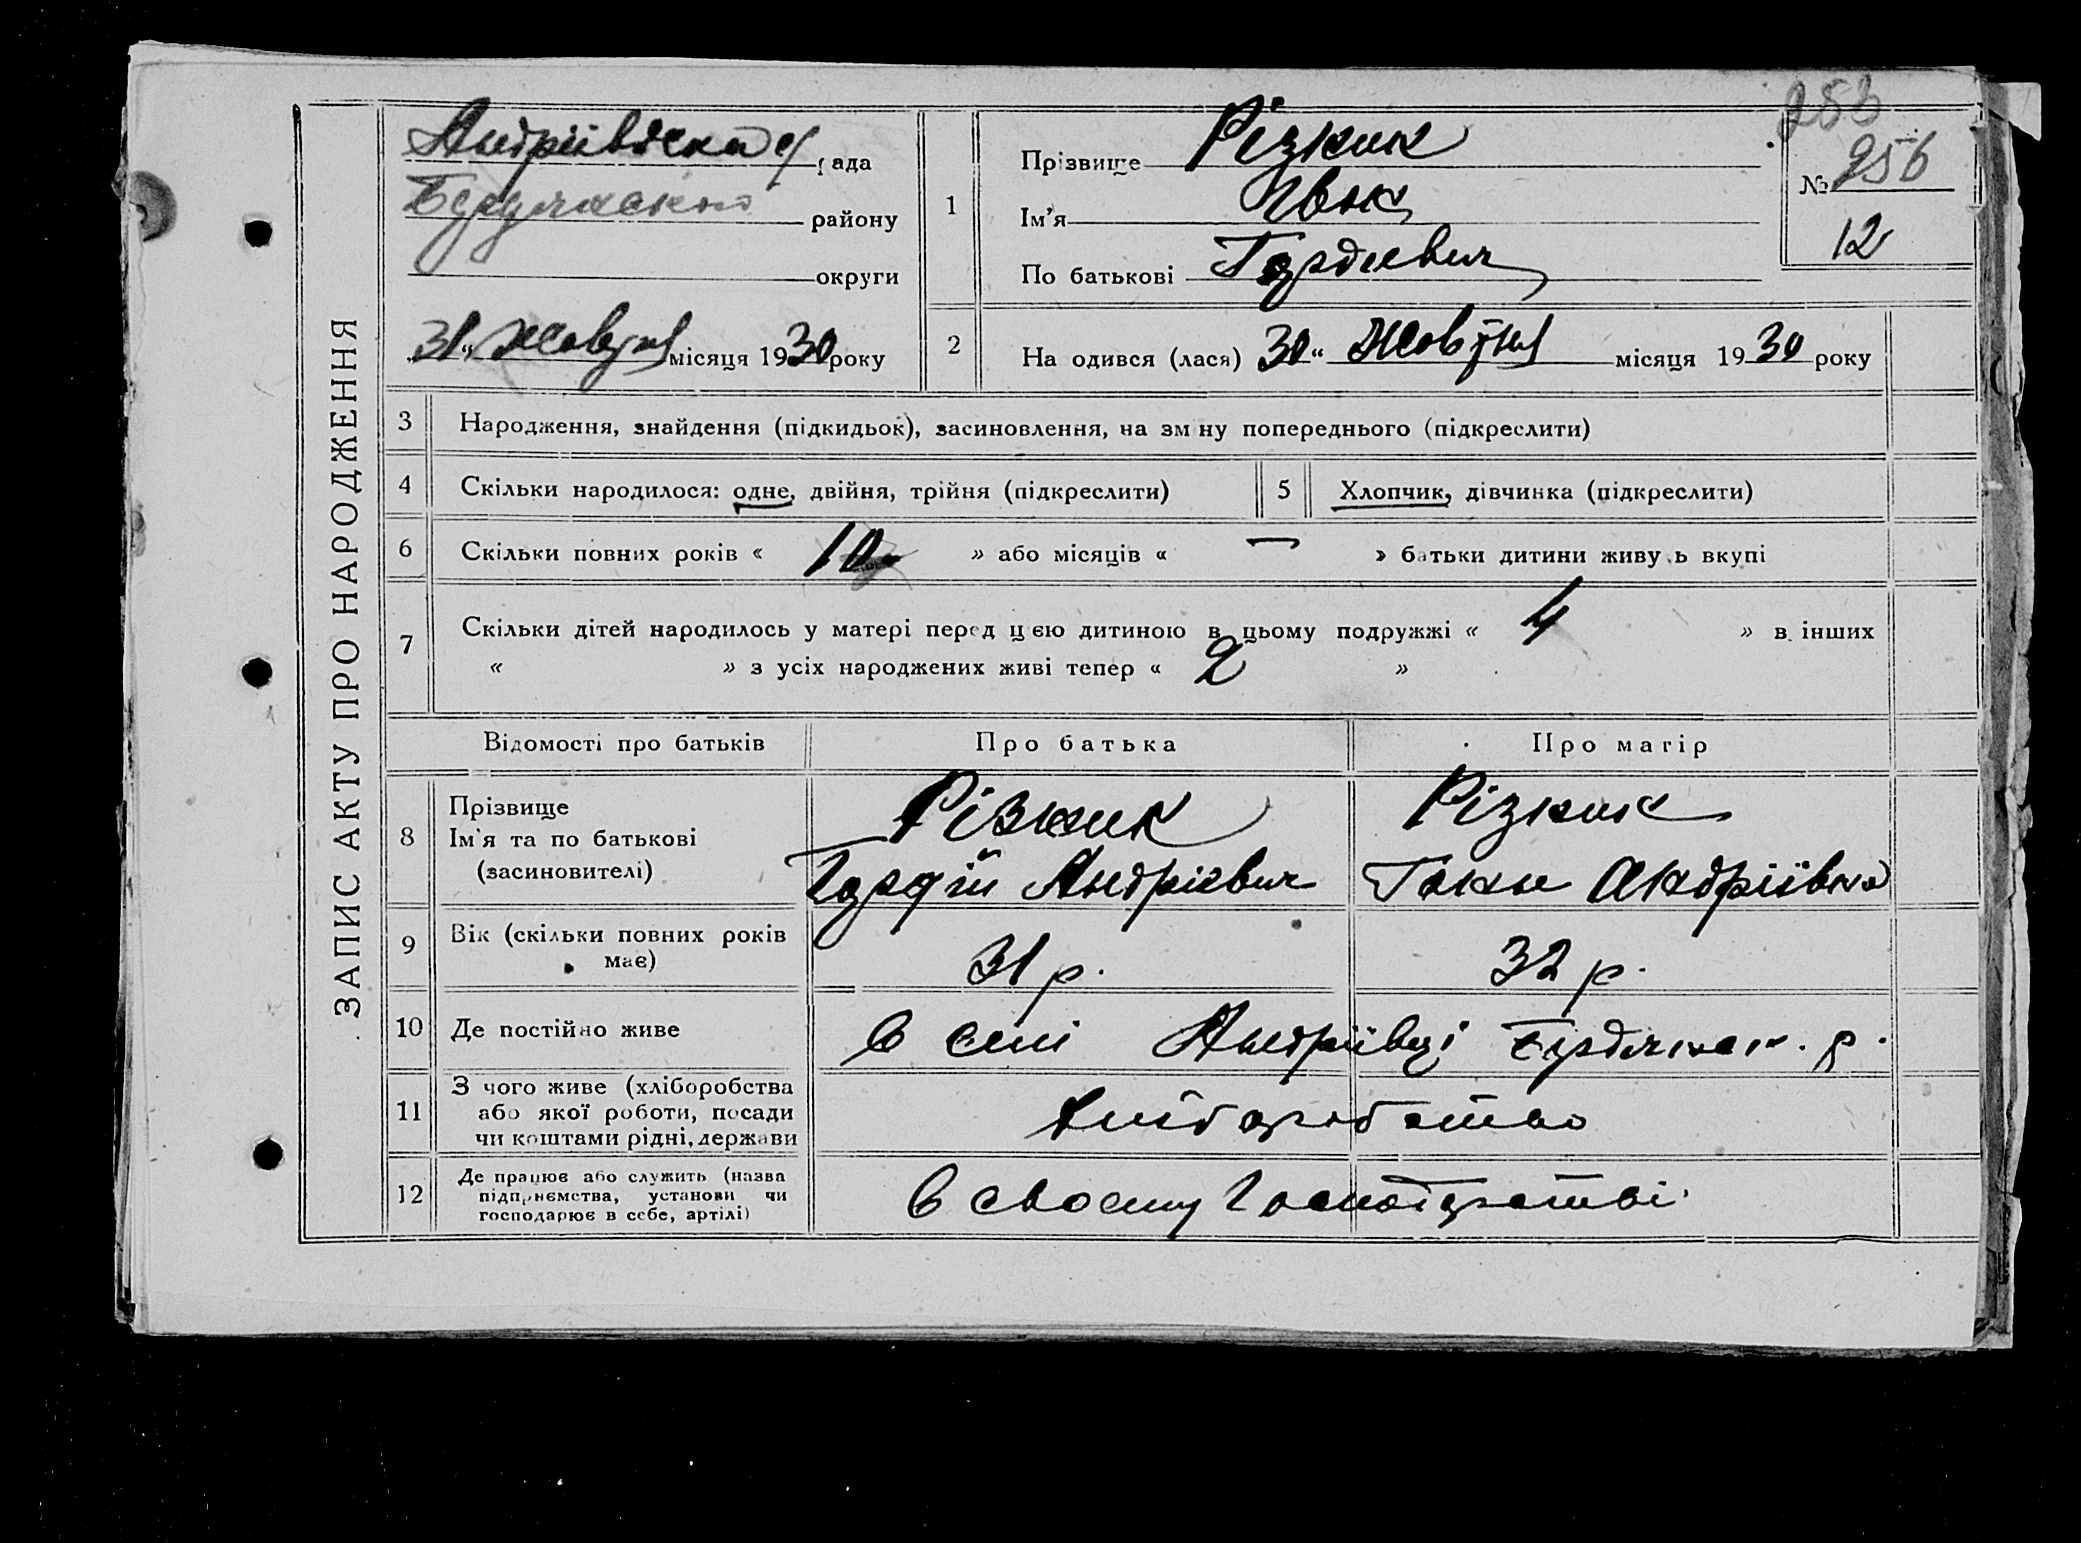 ЗАПИС АКТУ ПРО НАРОДЖЕННЯ
253
Андріївська с/рада
району
округи
„31“ Жовтня місяця 1930 року
1
Прізвище Різник
Ім'я Іван
По батькові Гордієвич
№ 256
12
2
На одився (лася) 30“ Жовтня місяця 1930 року
3 Народження, знайдення (підкидьок), засиновлення, на зм ну попереднього (підкреслити)
4 Скільки народилося: одне, двійня, трійня (підкреслити)
5 Хлопчик, дівчинка (підкреслити)
6 Скільки повних років « 10 » або місяців « — » батьки дитини живу ь вкупі
7 Скільки дітей народилось у матері перед цією дитиною в цьому подружжі « 4 » в інших
« » з усіх народжених живі тепер « 2 »
Відомості про батьків
Про батька
Про матір
8 Прізвище
Ім'я та по батькові
(засиновителі)
Різник
Гордій Андрієвич
Різник
Андріївна
9 Вік (скільки повних років
має)
31 р.
32 р.
10 Де постійно живе
в селі Андріївці Бердянськ. р.
11 З чого живе (хліборобства
або якої роботи, посади
чи коштами рідні, держави
хліборобство
12 Де працює або служить (назва
підприємства, установи чи
господарює в себе, артілі)
в своєму господарстві